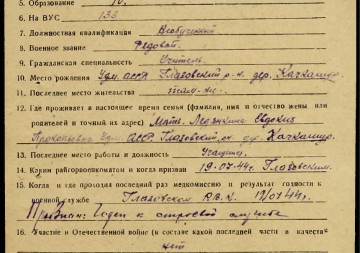 5. Образование
6. На ВУС 133
7. Должностная квалификация Необученный
8. Военное звание Рядовой.
9. Гражданская специальность Учитель.
10. Место рождения Удм. АССР Глазовский р-н. дер. Качкашур.
11. Последнее место жительства там-же.
12. Где проживает в настоящее время семья (фамилия, имя и отчество жены или
родителей и точный их адрес) Мать Евдокия
Прокопьевна Удм. АССР. Глазовский р-н дер. Качкашур.
13. Последнее место работы и должность Учащийся.
14. Каким райгорвоенкоматом и когда призван 19.07.44г. Глазовским.
15. Когда и где проходил последний раз медкомиссию и результат годности к
военной службе Глазовском Р.В.К. 12/VII 44г.
Признан: Годен к строевой службе
16. Участие в Отечественной войне (в составе какой последней части и в качестве
нет